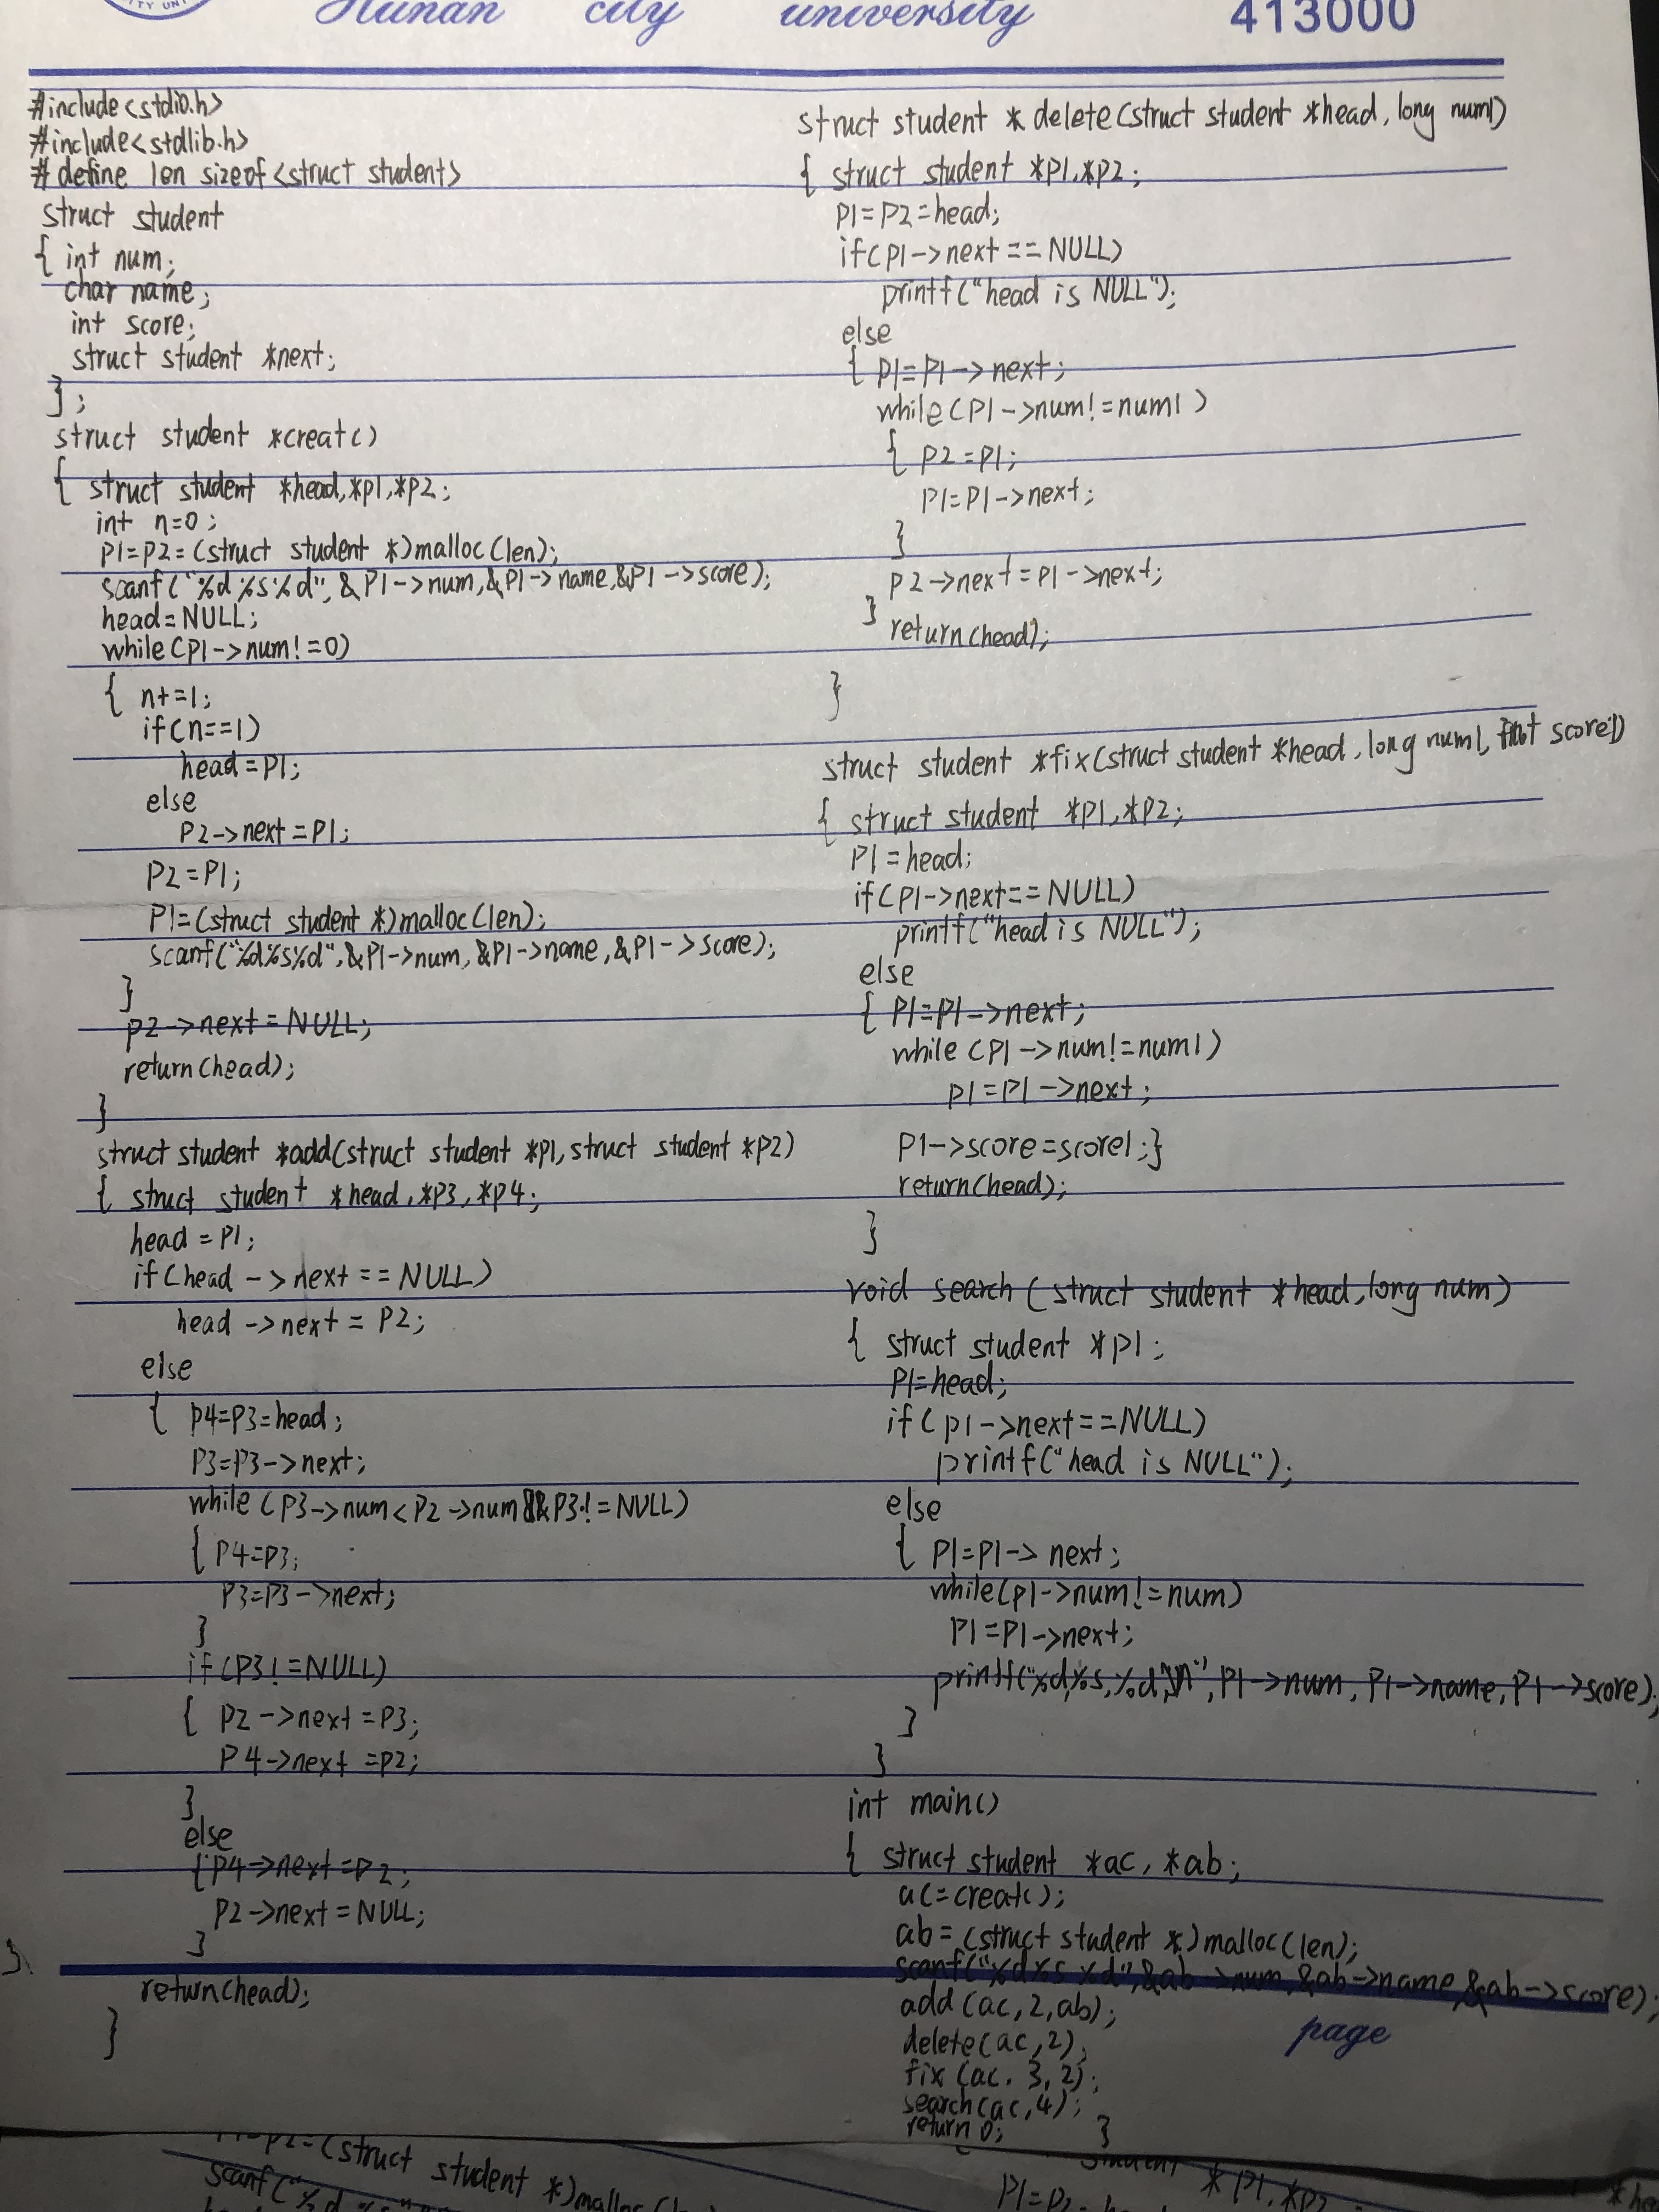 ITY UNI
Hunan city university 413000
#include<stdio.h>
#include<stdlib.h>
#define len sizeof<struct student>
struct student
{ int num;
char name;
int score;
struct student *next;
};
struct student *creat()
{ struct student *head,*p1,*p2;
int n=0;
p1=p2=(struct student *)malloc(len);
scanf("%d%s%d",&p1->num,&p1->name,&p1->score);
head=NULL;
while(p1->num!=0)
{ n+=1;
if(n==1)
head=p1;
else
p2->next=p1;
p2=p1;
p1=(struct student *)malloc(len);
scanf("%d%s%d",&p1->num,&p1->name,&p1->score);
}
p2->next=NULL;
return(head);
}
struct student *add(struct student *p1,struct student *p2)
{ struct student *head,*p3,*p4;
head=p1;
if(head->next==NULL)
head->next=p2;
else
{ p4=p3=head;
p3=p3->next;
while(p3->num<p2->num&&p3!=NULL)
{ p4=p3;
p3=p3->next;
}
if(p3!=NULL)
{ p2->next=p3;
p4->next=p2;
}
else
{p4->next=p2;
p2->next=NULL;
}
}
return(head);
}
struct student *delete(struct student *head,long num1)
{ struct student *p1,*p2;
p1=p2=head;
if(p1->next==NULL)
printf("head is NULL");
else
{ p1=p1->next;
while(p1->num!=num1)
{ p2=p1;
p1=p1->next;
}
p2->next=p1->next;
}
return(head);
}
struct student *fix(struct student *head,long num1, score1)
{ struct student *p1,*p2;
p1=head;
if(p1->next==NULL)
printf("head is NULL");
else
{ p1=p1->next;
while(p1->num!=num1)
p1=p1->next;
p1->score=score1;}
return(head);
}
void search(struct student *head,long num)
{ struct student *p1;
p1=head;
if(p1->next==NULL)
printf("head is NULL");
else
{ p1=p1->next;
while(p1->num!=num)
p1=p1->next;
printf("%d,%s,%d,\n",p1->num,p1->name,p1->score);
}
}
int main()
{ struct student *ac,*ab;
ac=creat();
ab=(struct student *)malloc(len);
scanf("%d%s%d",&ab->num,&ab->name,&ab->score);
add(ac,2,ab);
delete(ac,2);
fix(ac.3,2);
search(ac,4);
return 0; }
page
p2=(struct student *)malloc(
scanf("%d %s
student *p1,*p2
p1=p2=h